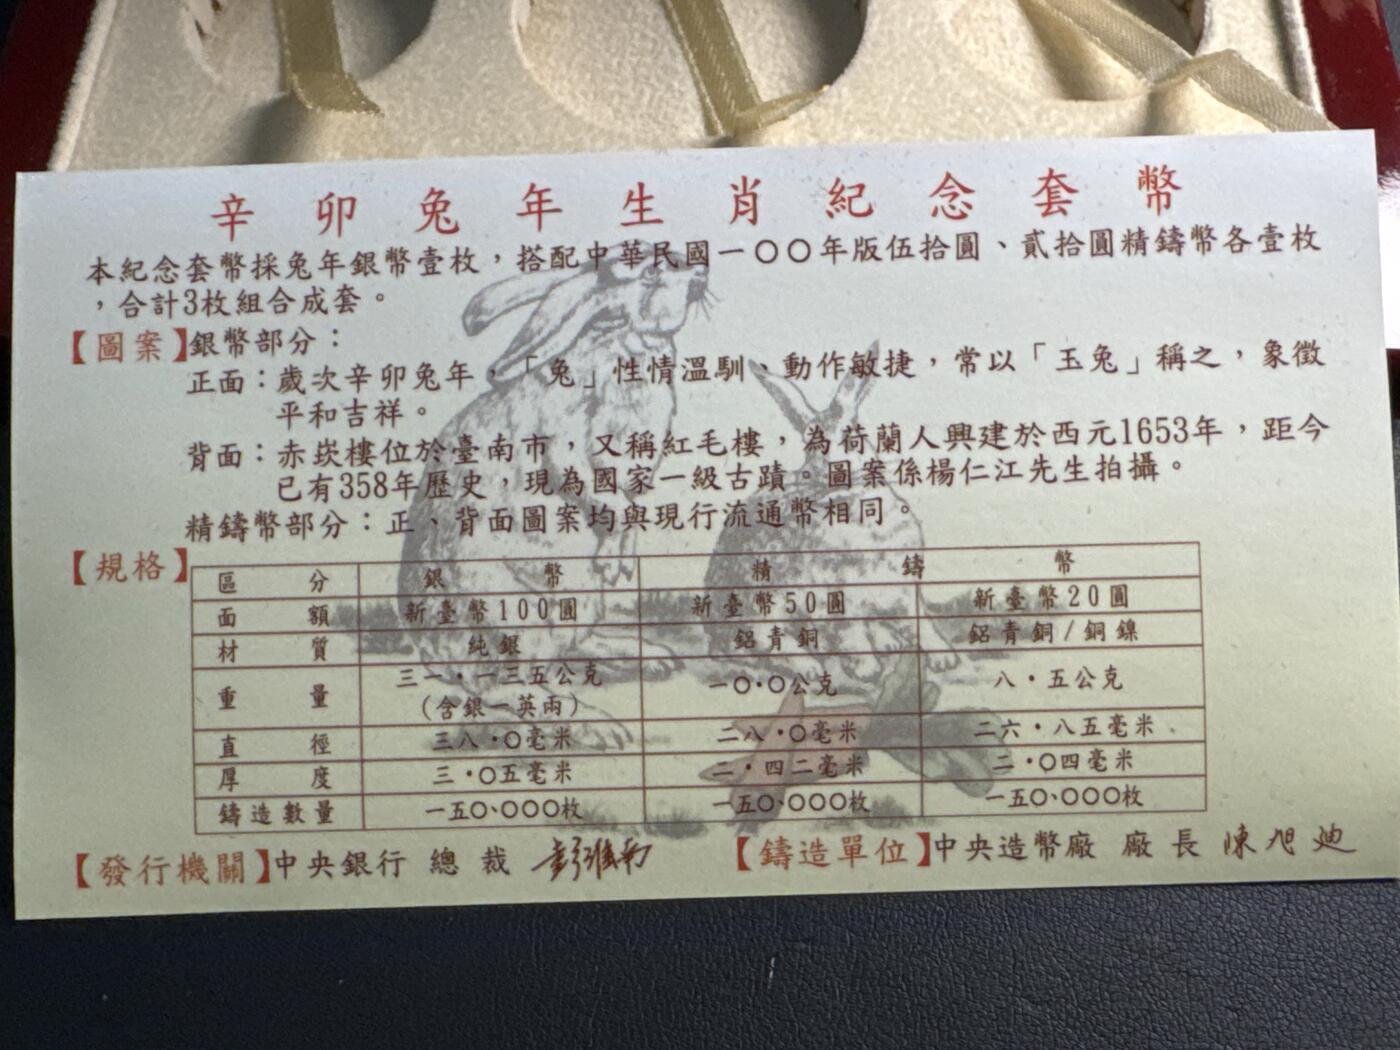 辛卯兔年生肖紀念套幣
本紀念套幣採兔年銀幣壹枚，搭配中華民國一〇〇年版伍拾圓、貳拾圓精鑄幣各壹枚
，合計3枚組合成套。
【圖案】銀幣部分：
正面：歲次辛卯兔年，「兔」性情溫馴、動作敏捷，常以「玉兔」稱之，象徵
平和吉祥。
背面：赤崁樓位於臺南市，又稱紅毛樓，為荷蘭人興建於西元1653年，距今
已有358年歷史，現為國家一級古蹟。圖案係楊仁江先生拍攝。
精鑄幣部分：正、背面圖案均與現行流通幣相同。
【規格】
區分 銀幣 精鑄幣
面額 新臺幣100圓 新臺幣50圓 新臺幣20圓
材質 純銀 鋁青銅 鋁青銅/銅鎳
重量 三一・一三五公克 一〇・〇公克 八・五公克
（含銀一英兩）
直徑 三八・〇毫米 二八・〇毫米 二六・八五毫米
厚度 三・〇五毫米 二・四二毫米 二・〇四毫米
鑄造數量 一五〇、〇〇〇枚 一五〇、〇〇〇枚 一五〇、〇〇〇枚
【發行機關】中央銀行 總裁 彭淮南 【鑄造單位】中央造幣廠 廠長 陳旭迪